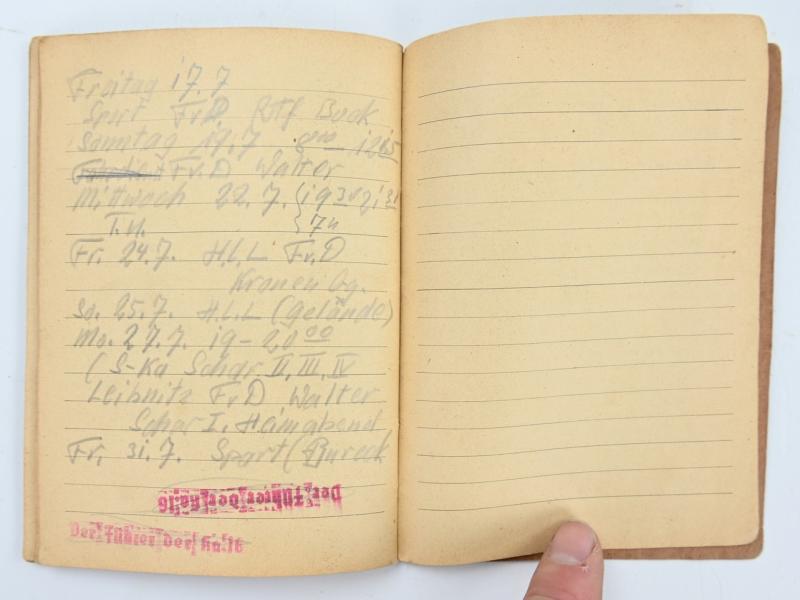 Freitag 17.7
Sport Fr.D. Bock
Sonntag 19.7 8⁰⁰ – 12¹⁵
Fr.D Walter
Mittwoch 22.7. 19³⁰ 21³¹
T.H.
Fr. 24.7. H.L.L Fr.D
Kronenbg.
So. 25.7. H.L.L (Gelände)
Mo. 27.7. 19 – 20⁰⁰
(S-Ka Schar II, III, IV
Leibnitz Fr.D Walter
Schar I. Heimabend
Fr. 31.7. Sport (Bureck
Der Führer der
Der Führer der